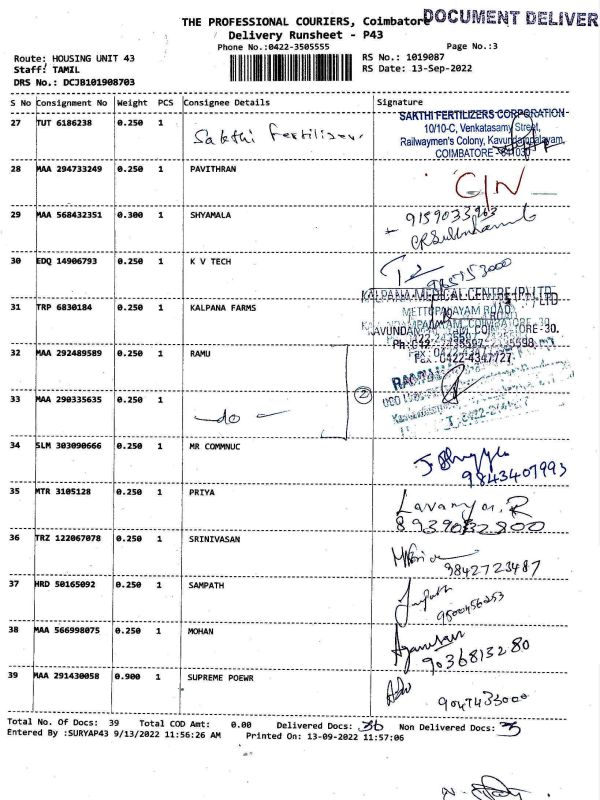 THE PROFESSIONAL COURIERS, Coimbatore DOCUMENT DELIVER
Delivery Runsheet - P43
Phone No.:0422-3505555 Page No.:3
Route: HOUSING UNIT 43 RS No.: 1019087
Staff: TAMIL RS Date: 13-Sep-2022
DRS No.: DCJB101908703
S No Consignment No Weight PCS Consignee Details Signature
27 TUT 6186238 0.250 1 Sakthi Fertiliser. SAKTHI FERTILIZERS CORPORATION
10/10-C, Venkatasamy Street,
Railwaymen's Colony, Kavundampalayam,
COIMBATORE - 641030
28 MAA 294733249 0.250 1 PAVITHRAN
29 MAA 568432351 0.300 1 SHYAMALA
30 EDQ 14906793 0.250 1 K V TECH
KALPANA MEDICAL CENTRE (P) LTD
31 TRP 6830184 0.250 1 KALPANA FARMS METTUPALAYAM ROAD
32 MAA 292489589 0.250 1 RAMU Fax: 0422-4347727
33 MAA 290335635 0.250 1 -do- 2
34 SLM 303090666 0.250 1 MR COMMNUC
9843407993
35 MTR 3105128 0.250 1 PRIYA Lavanya. R
36 TRZ 122067078 0.250 1 SRINIVASAN
9842723487
37 HRD 50165092 0.250 1 SAMPATH
9500456253
38 MAA 566998075 0.250 1 MOHAN
9036813280
39 MAA 291430058 0.900 1 SUPREME POEWR
9047433000
Total No. Of Docs: 39 Total COD Amt: 0.00 Delivered Docs: 36 Non Delivered Docs: 3
Entered By :SURYAP43 9/13/2022 11:56:26 AM Printed On: 13-09-2022 11:57:06